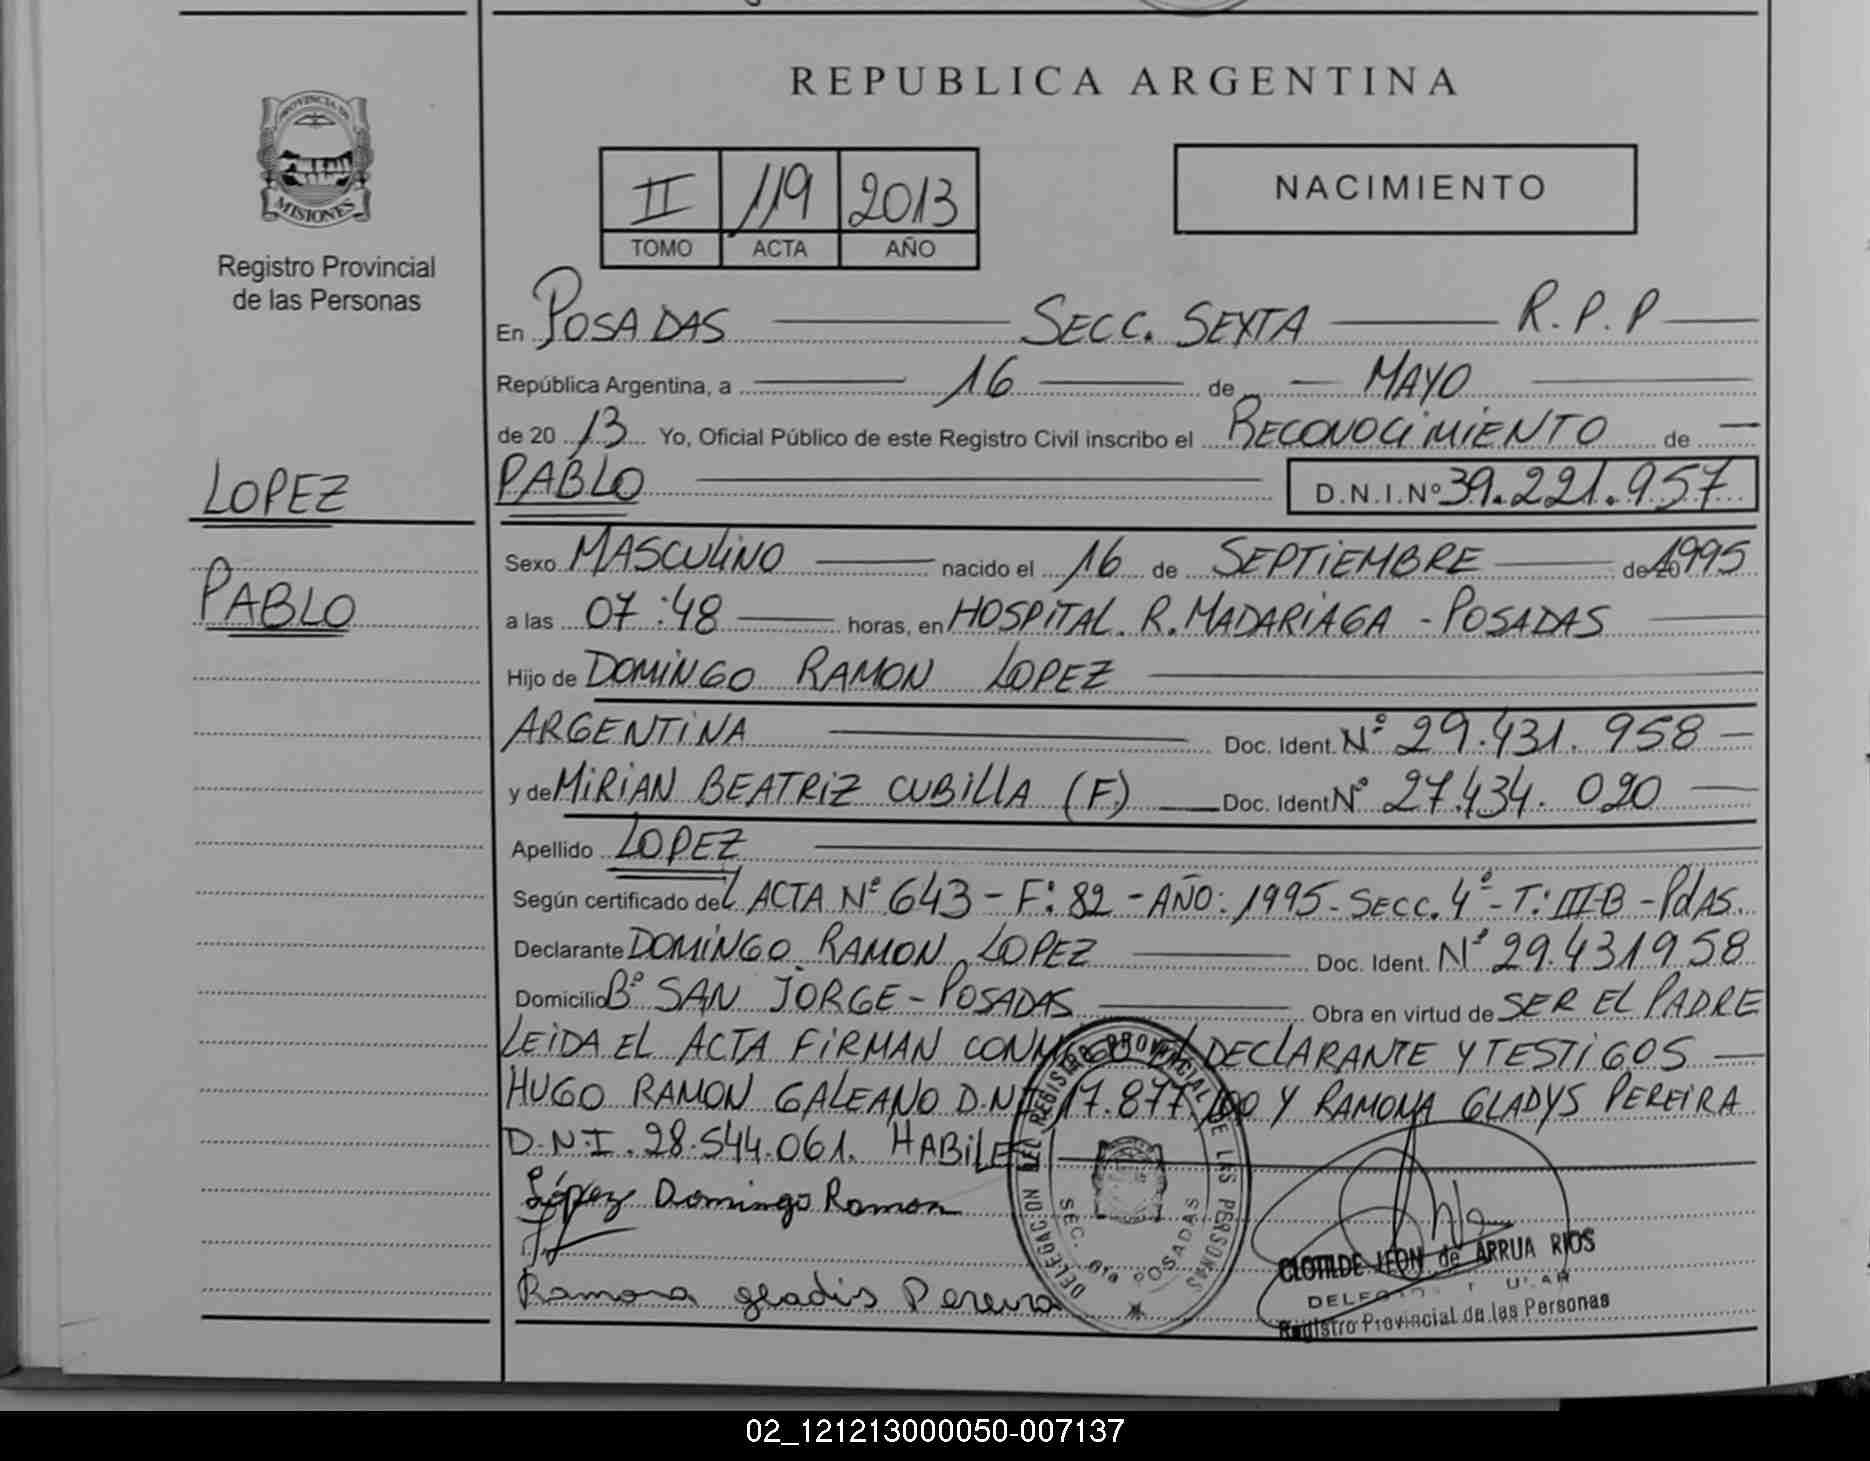 REPUBLICA ARGENTINA
PROVINCIA DE
MISIONES
Registro Provincial
de las Personas
II 119 2013
TOMO ACTA AÑO
NACIMIENTO
En POSADAS SECC. SEXTA R.P.P
República Argentina, a 16 de MAYO
de 20 13 Yo, Oficial Público de este Registro Civil inscribo el RECONOCIMIENTO de
LOPEZ
PABLO
PABLO D.N.I.Nº 39.221.957
Sexo MASCULINO nacido el 16 de SEPTIEMBRE de 20 1995
a las 07:48 horas, en HOSPITAL R. MADARIAGA - POSADAS
Hijo de DOMINGO RAMON LOPEZ
ARGENTINA Doc. Ident. Nº 29.431.958
y de MIRIAN BEATRIZ CUBILLA (F.) Doc. Ident Nº 27.434.020
Apellido LOPEZ
Según certificado del ACTA Nº 643 - F: 82 - AÑO: 1995 - SECC. 4º - T: III-B - PdAS.
Declarante DOMINGO RAMON LOPEZ Doc. Ident. Nº 29.431958
Domicilio Bº SAN JORGE - POSADAS Obra en virtud de SER EL PADRE
LEIDA EL ACTA FIRMAN CONMIGO EL DECLARANTE Y TESTIGOS
HUGO RAMON GALEANO D.N.I 17.877. Y RAMONA GLADYS PEREIRA
D.N.I. 28.544.061. HABILES
López Domingo Ramon
Ramona gladis Pereira
DELEGACION DEL REGISTRO PROVINCIAL DE LAS PERSONAS
SEC. 6ta POSADAS
CLOTILDE LEON de ARRUA RIOS
Registro Provincial de las Personas
02_121213000050-007137